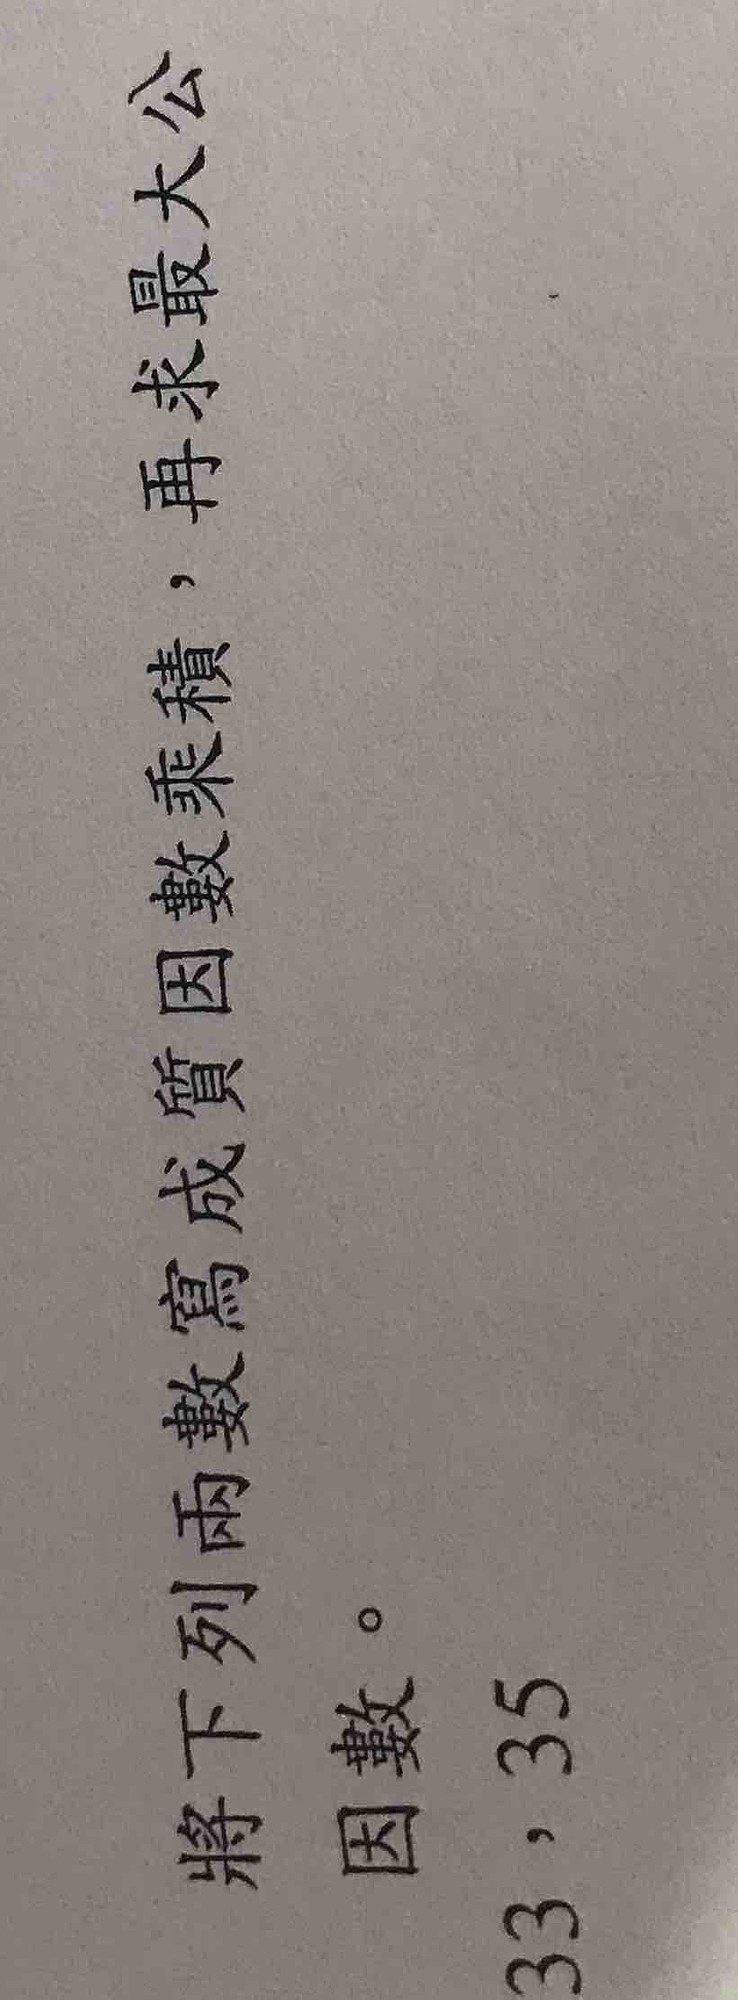 將下列兩數寫成質因數乘積，再求最大公
因數。
33，35